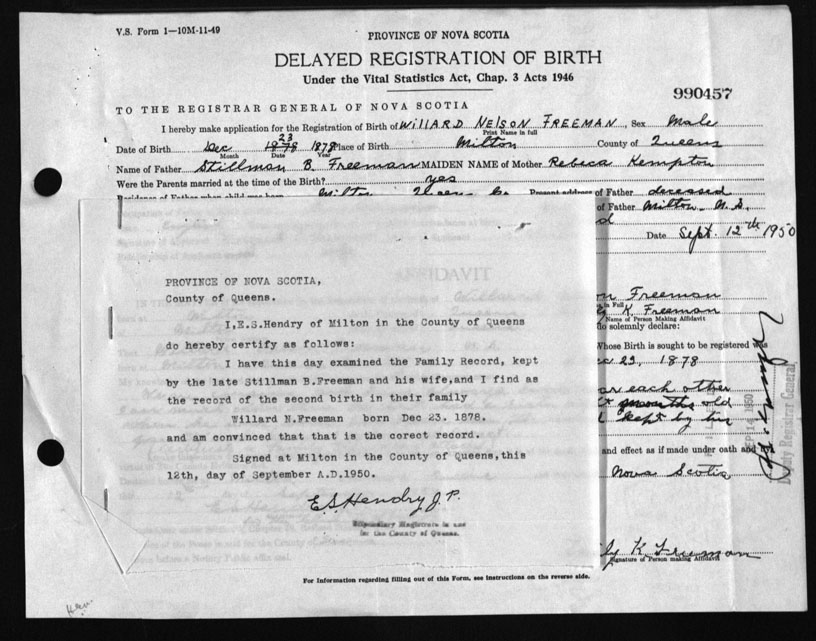 V.S. Form 1—10M-11-49
PROVINCE OF NOVA SCOTIA
DELAYED REGISTRATION OF BIRTH
Under the Vital Statistics Act, Chap. 3 Acts 1946
990457
TO THE REGISTRAR GENERAL OF NOVA SCOTIA
I hereby make application for the Registration of Birth of WILLARD NELSON FREEMAN, Sex Male
Print Name in full
Date of Birth Dec 23 1878 Place of Birth Milton County of Queens
Month Date Year
Name of Father Stillman B. Freeman MAIDEN NAME of Mother Rebica Kempton
Were the Parents married at the time of the Birth? yes
Residence of Father when child was born Milton Queens Co Present address of Father deceased
of Father Milton N.S.
d
Date Sept. 12th 1950
AFFIDAVIT
PROVINCE OF NOVA SCOTIA,
County of Queens.
I,E.S.Hendry of Milton in the County of Queens
do hereby certify as follows:
I have this day examined the Family Record, kept
by the late Stillman B.Freeman and his wife,and I find as
the record of the second birth in their family
Willard N.Freeman born Dec 23. 1878.
and am convinced that that is the corect record.
Signed at Milton in the County of Queens,this
12th, day of September A.D.1950.
E.S. Hendry J.P.
Stipendiary Magistrate in and
for the County of Queens.
Freeman
in Full
K. Freeman
Name of Person Making Affidavit
do solemnly declare:
Whose Birth is sought to be registered was
23, 1878
each other
months old
kept by the
and effect as if made under oath and
Nova Scotia
SEP 14 1950
Deputy Registrar General
K Freeman
Signature of Person making Affidavit
For Information regarding filling out of this Form, see instructions on the reverse side.